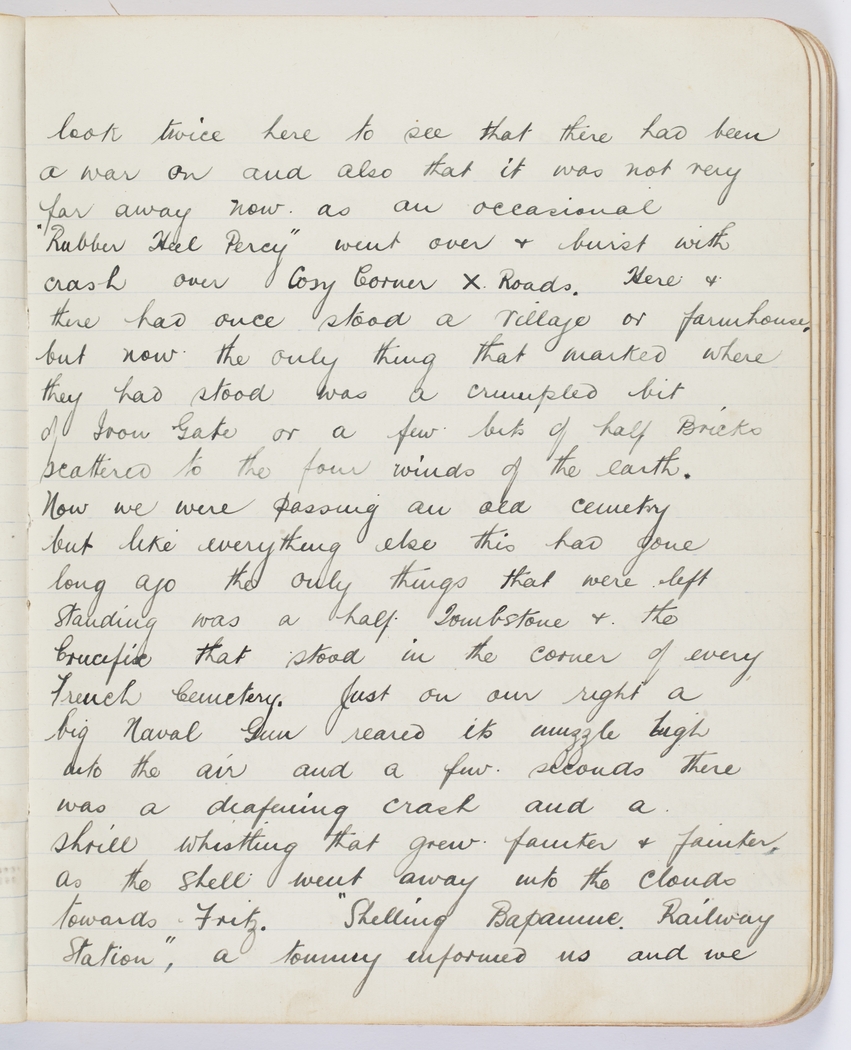 look twice here to see that there had been
a war on and also that it was not very
far away now. as an occasional
"Rubber Heel Percy" went over & burst with
crash over Cosy Corner X. Roads. Here &
there had once stood a village or farmhouse,
but now the only thing that marked where
they had stood was a crumpled bit
of Iron Gate or a few bits of half Bricks
scattered to the four winds of the earth.
Now we were passing an old cemetry
but like everything else this had gone
long ago the only things that were left
standing was a half Tombstone & the
Crucifix that stood in the corner of every
French Cemetery. Just on our right a
big Naval Gun reared its muzzle high
into the air and a few seconds there
was a deafening crash and a
shrill whistling that grew fainter & fainter,
as the shell went away into the clouds
towards Fritz. "Shelling Bapaume. Railway
Station", a tommy informed us and we